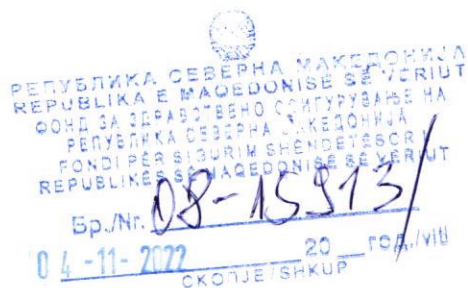 РЕПУБЛИКА СЕВЕРНА МАКЕДОНИЈА
REPUBLIKA E MAQEDONISË SË VERIUT
ФОНД ЗА ЗДРАВСТВЕНО ОСИГУРУВАЊЕ НА
РЕПУБЛИКА СЕВЕРНА МАКЕДОНИЈА
FONDI PËR SIGURIM SHËNDETËSOR I
REPUBLIKËS SË MAQEDONISË SË VERIUT
Бр./Nr. 08-15913/
04-11-2022 20 __ ГОД./viti
СКОПЈЕ/SHKUP